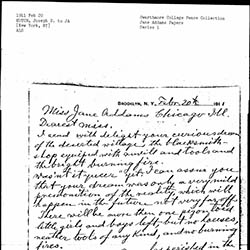 1911 Feb 20
to JA
[New York, NY]
ALS
Swarthmore College Peace Collection
Jane Addams Papers
Series 1
BROOKLYN, N. Y., Febr. 20th 191
Miss Jane Addams Chicago Ill.
Dearest Miss.
I read with delight your curious dream
of the deserted village, the blacksmith-
shop equipped with anvils and tools and
the bright burning fire.
wasn't it queer. Yet I can assure you
that your dream was only a very mild
of the reality which will
happen in the future not very far off.
There will be more than one
little girls and boys left, but no
neither tools of any kind, and no burning
fires.